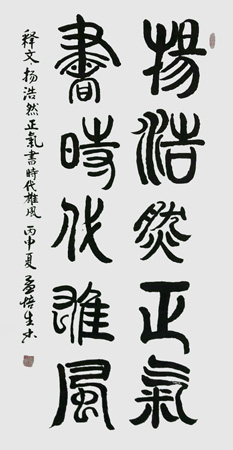 揚浩然正氣
書時代雄風
释文扬浩然正氣書時代雄風丙申夏孟培生书